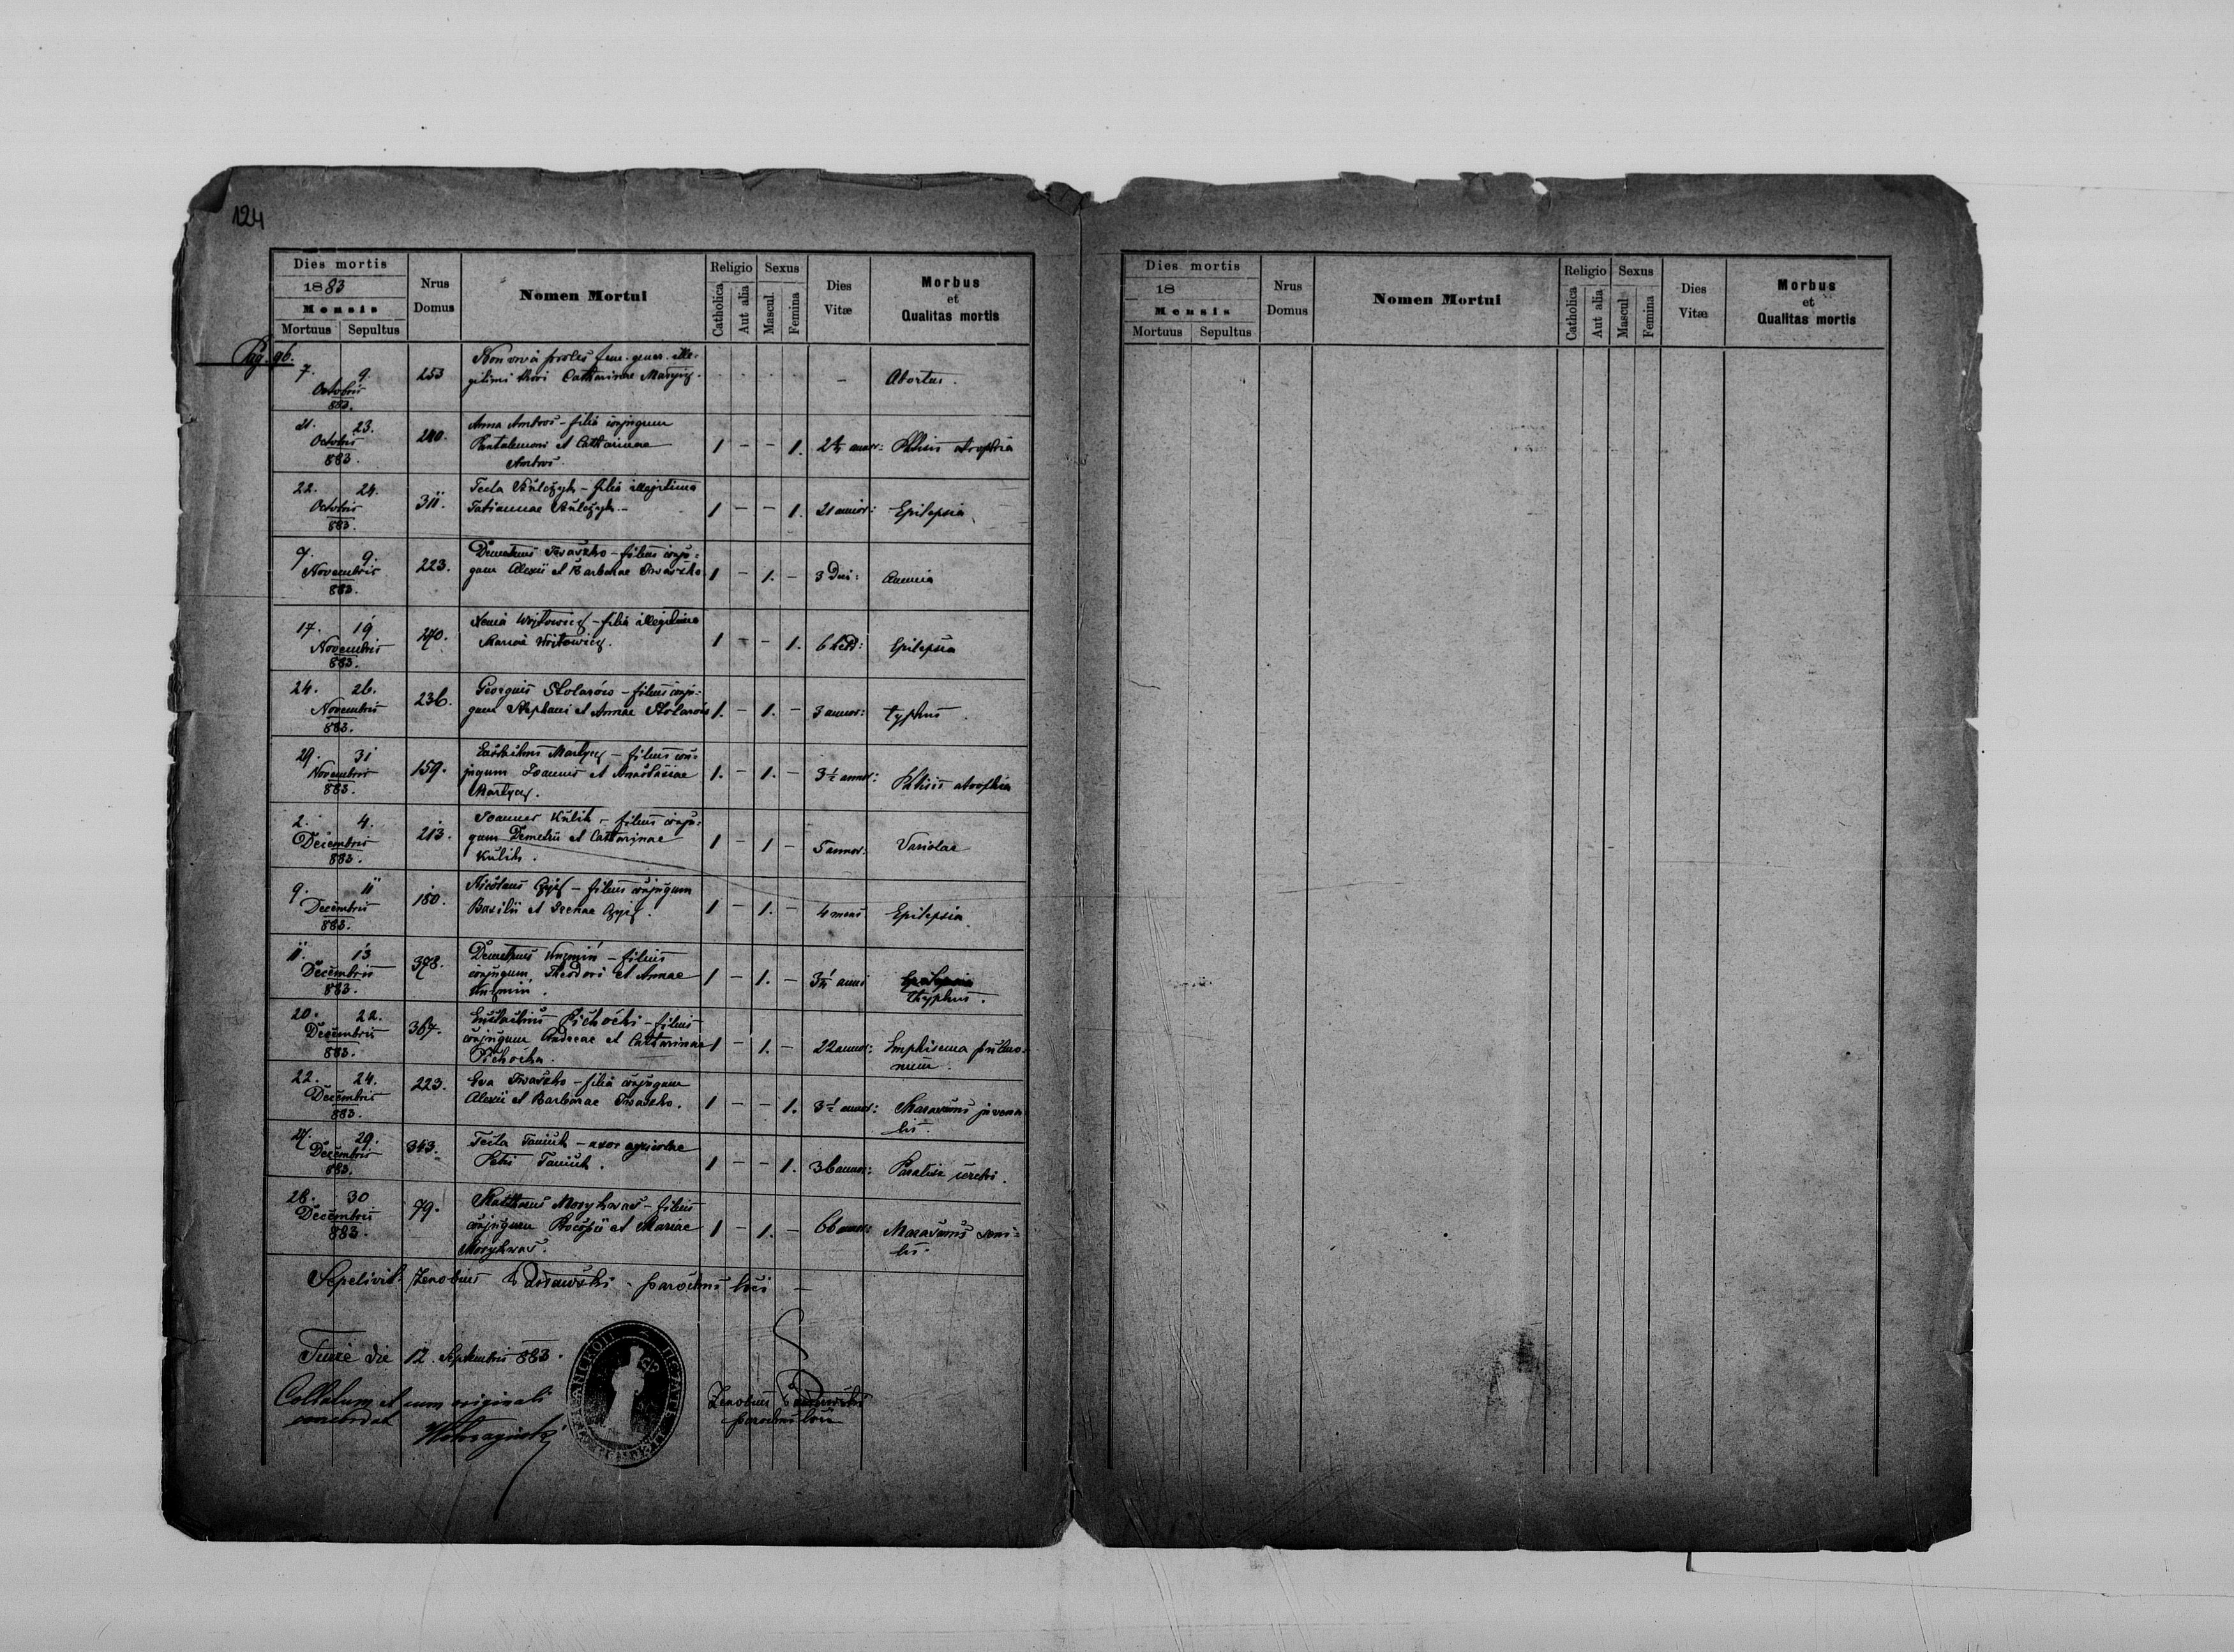 124
Dies mortis
1883
Mensis
Mortuus Sepultus
Nrus Domus
Nomen Mortui
Religio
Catholica
Aut alia
Sexus
Mascul.
Femina
Dies Vitæ
Morbus
et
Qualitas mortis
Pag. 96.
7. 9. Octobris 883. 253 Non viva proles fem. gener. ille-
gitimi thori Catharinae — Abortus.
21. 23. Octobris 883. 240. Anna Ambros – filia conjugum
Pantalemoni et Catharinae
Ambros. 1 – – 1. annor: Phtisis atrophia
22. 24. Octobris 883. 311. Tecla – filia illegitima
Tatiannae 1 – – 1. 21 annor: Epilepsia
9. Novembris 883. 223. Demetrius Iwaszko – filius conju-
gum Alexii et Barbarae Iwaszko 1 – 1. – 3 Anemia
17. 19 Novembris 883. 270. Xenia Wojtowicz – filia illegitima
Mariae Wojtowicz. 1 – – 1. 6 Epilepsia
24. 26. Novembris 883. 236. Georgius Stolarów – filius conju-
gum Stephani et Annae Stolarów 1. – 1. – 3 annor: typhus.
29. 31 Novembris 883. 159. Eustachius Martycz – filius con-
jugum Joannis et Anastasiae
Martycz. 1. – 1. – 3½ annor: Phtisis atrophia
2. 4. Decembris 883. 213. Joannes Kulik – filius conju-
gum Demetrii et Catharinae
Kulik. 1 – 1 – 5 annor: Variolae
9. 11 Decembris 883. 180. Nicolaus – filius conjugum
Basilii et 1 – 1. – 4 mens Epilepsia.
11. 13 Decembris 883. 378. Demetrius Kuzmin – filius
conjugum Theodori et Annae
Kuzmin. 1 – 1. – anni Epilepsia
thyphus.
20. 22. Decembris 883. 367. Eustachius Pichocki – filius
conjugum Andreae et Catharinae
Pichocka. 1 – 1. – 22 annor: Emphisema pulmo-
num.
22. 24. Decembris 883. 223. Eva Iwaszko – filia conjugum
Alexii et Barbarae Iwaszko. 1 – – 1. annor: Marasmus juveni-
lis.
27. 29. Decembris 883. 343. Tecla – uxor agricolae
Petri 1 – – 1. 36 annor: Paralisis cerebri.
28. 30 Decembris 883. 79. Matthaeus Morykwas – filius
conjugum Procopii et Mariae
Morykwas. 1 – 1. – 66 annor: Marasmus seni-
lis.
Sepelivit: Zenobius parochus loci —
die 12. Septembris 883.
Collatum et cum originali
concordat
Zenobius
parochus loci
Dies mortis
18
Mensis
Mortuus Sepultus
Nrus Domus
Nomen Mortui
Religio
Catholica
Aut alia
Sexus
Mascul.
Femina
Dies Vitæ
Morbus
et
Qualitas mortis